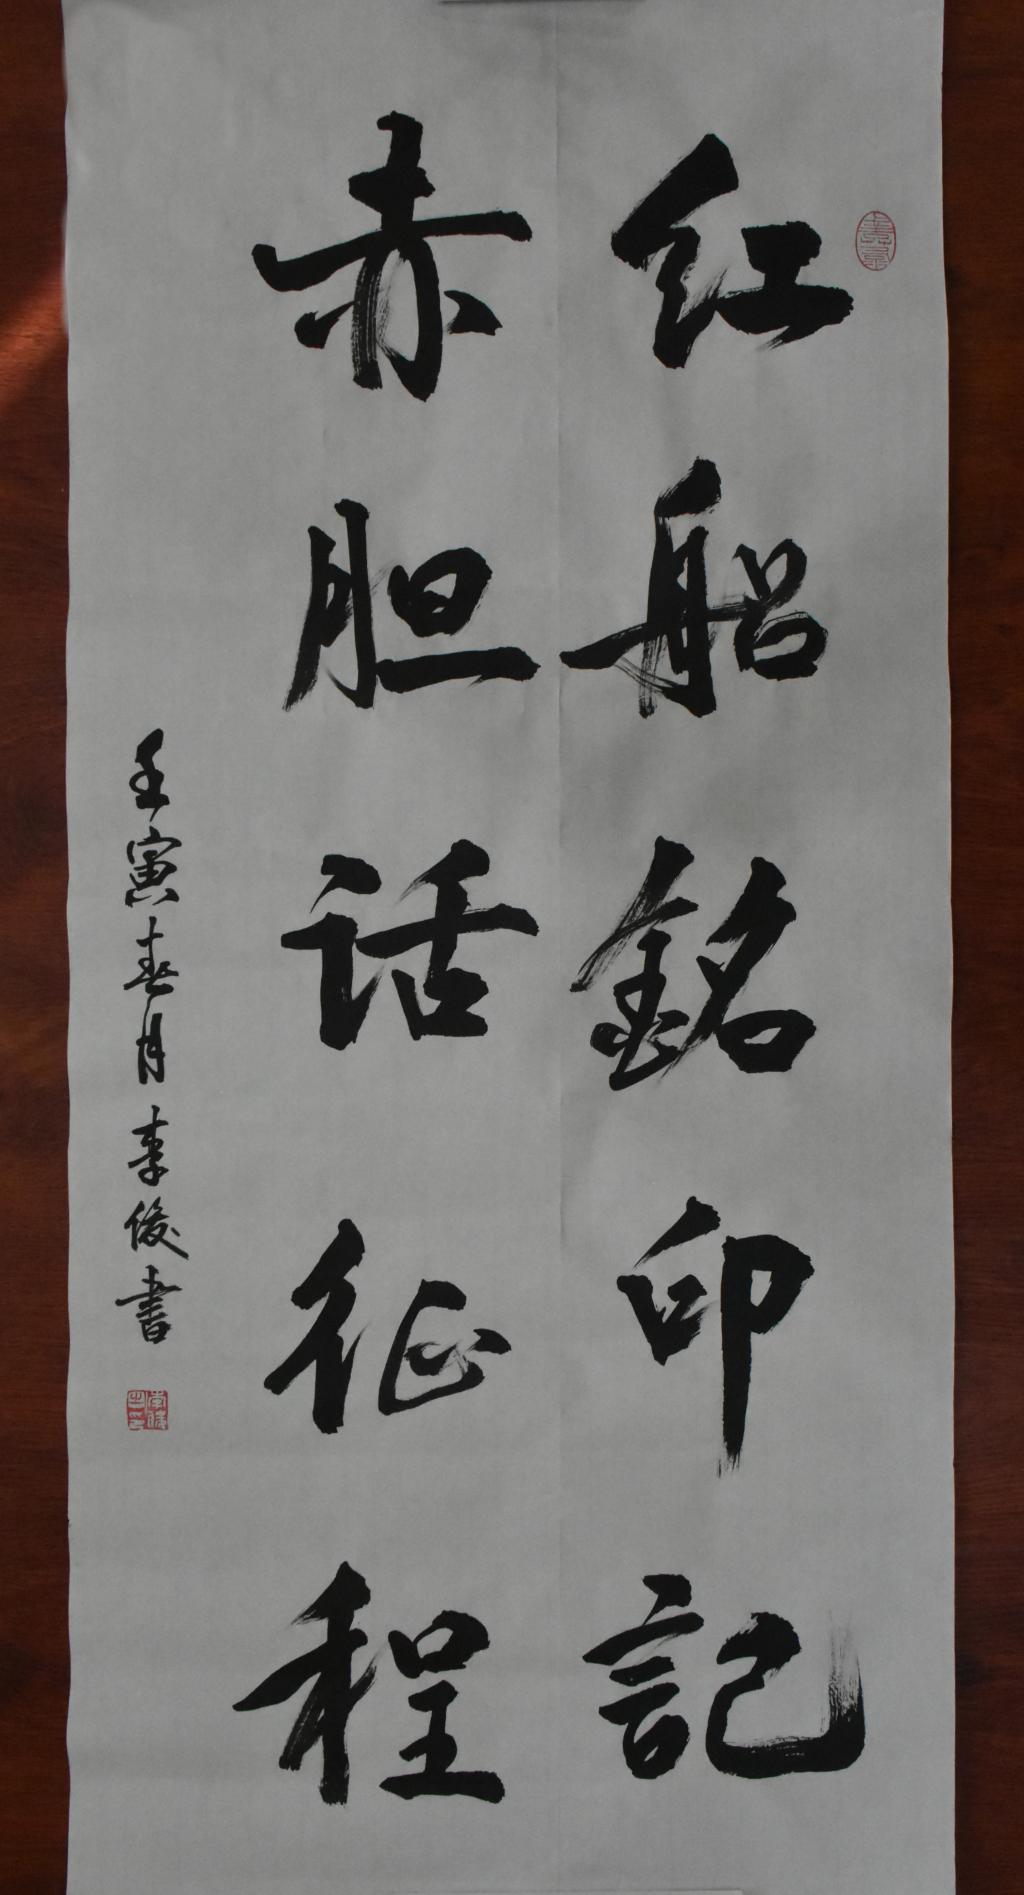 红船銘印記
赤胆话征程
壬寅春月李俊書